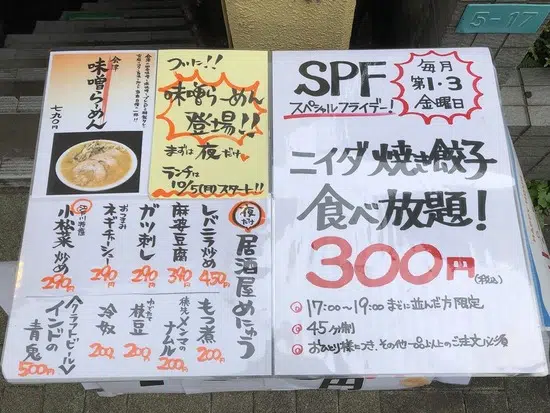 5-17
会津
味噌らーめん
七九〇円
ついに!!
味噌らーめん
登場!!
まずは夜だけ
ランチは
10/5(月)スタート!!
SPF
スペシャルフライデー!
毎月
第1・3
金曜日
ニイダ焼き餃子
食べ放題!
300円
(税込)
17:00〜19:00までに並んだ方限定
45分制
おひとり様につき、その他一品以上のご注文必須
夜の
居酒屋めにゅう
レバニラ炒め
450円
麻婆豆腐
390円
ガツ刺し
290円
おつまみ
ネギチャーシュー
290円
小松菜炒め
290円
もつ煮
200円
穂先メンマの
ナムル
200円
ゆでたて
枝豆
200円
冷奴
200円
〈クラフトビール〉
インドの
青鬼
500円
円